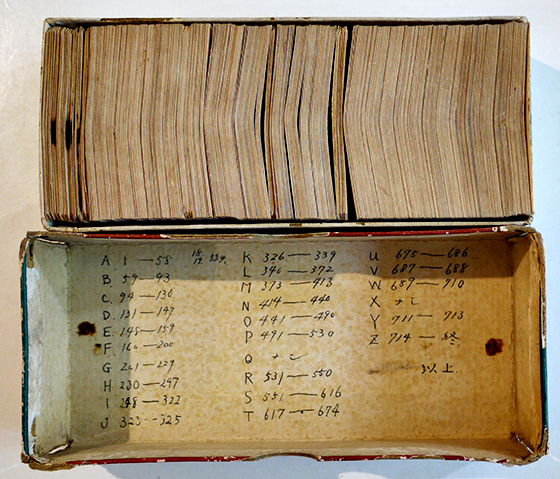 A 1—58
B. 59—93
C. 94—130
D. 131—147
E. 148—159
F. 160—200
G 201—229
H 230—247
I 248—322
J 323—325
K 326—339
L 340—372
M 373—413
N 414—440
O 441—490
P 491—530
Q ナシ
R 531—550
S 551—616
T 617—674
U 675—686
V 687—688
W 689—710
X ナシ
Y 711—713
Z 714—終
以上